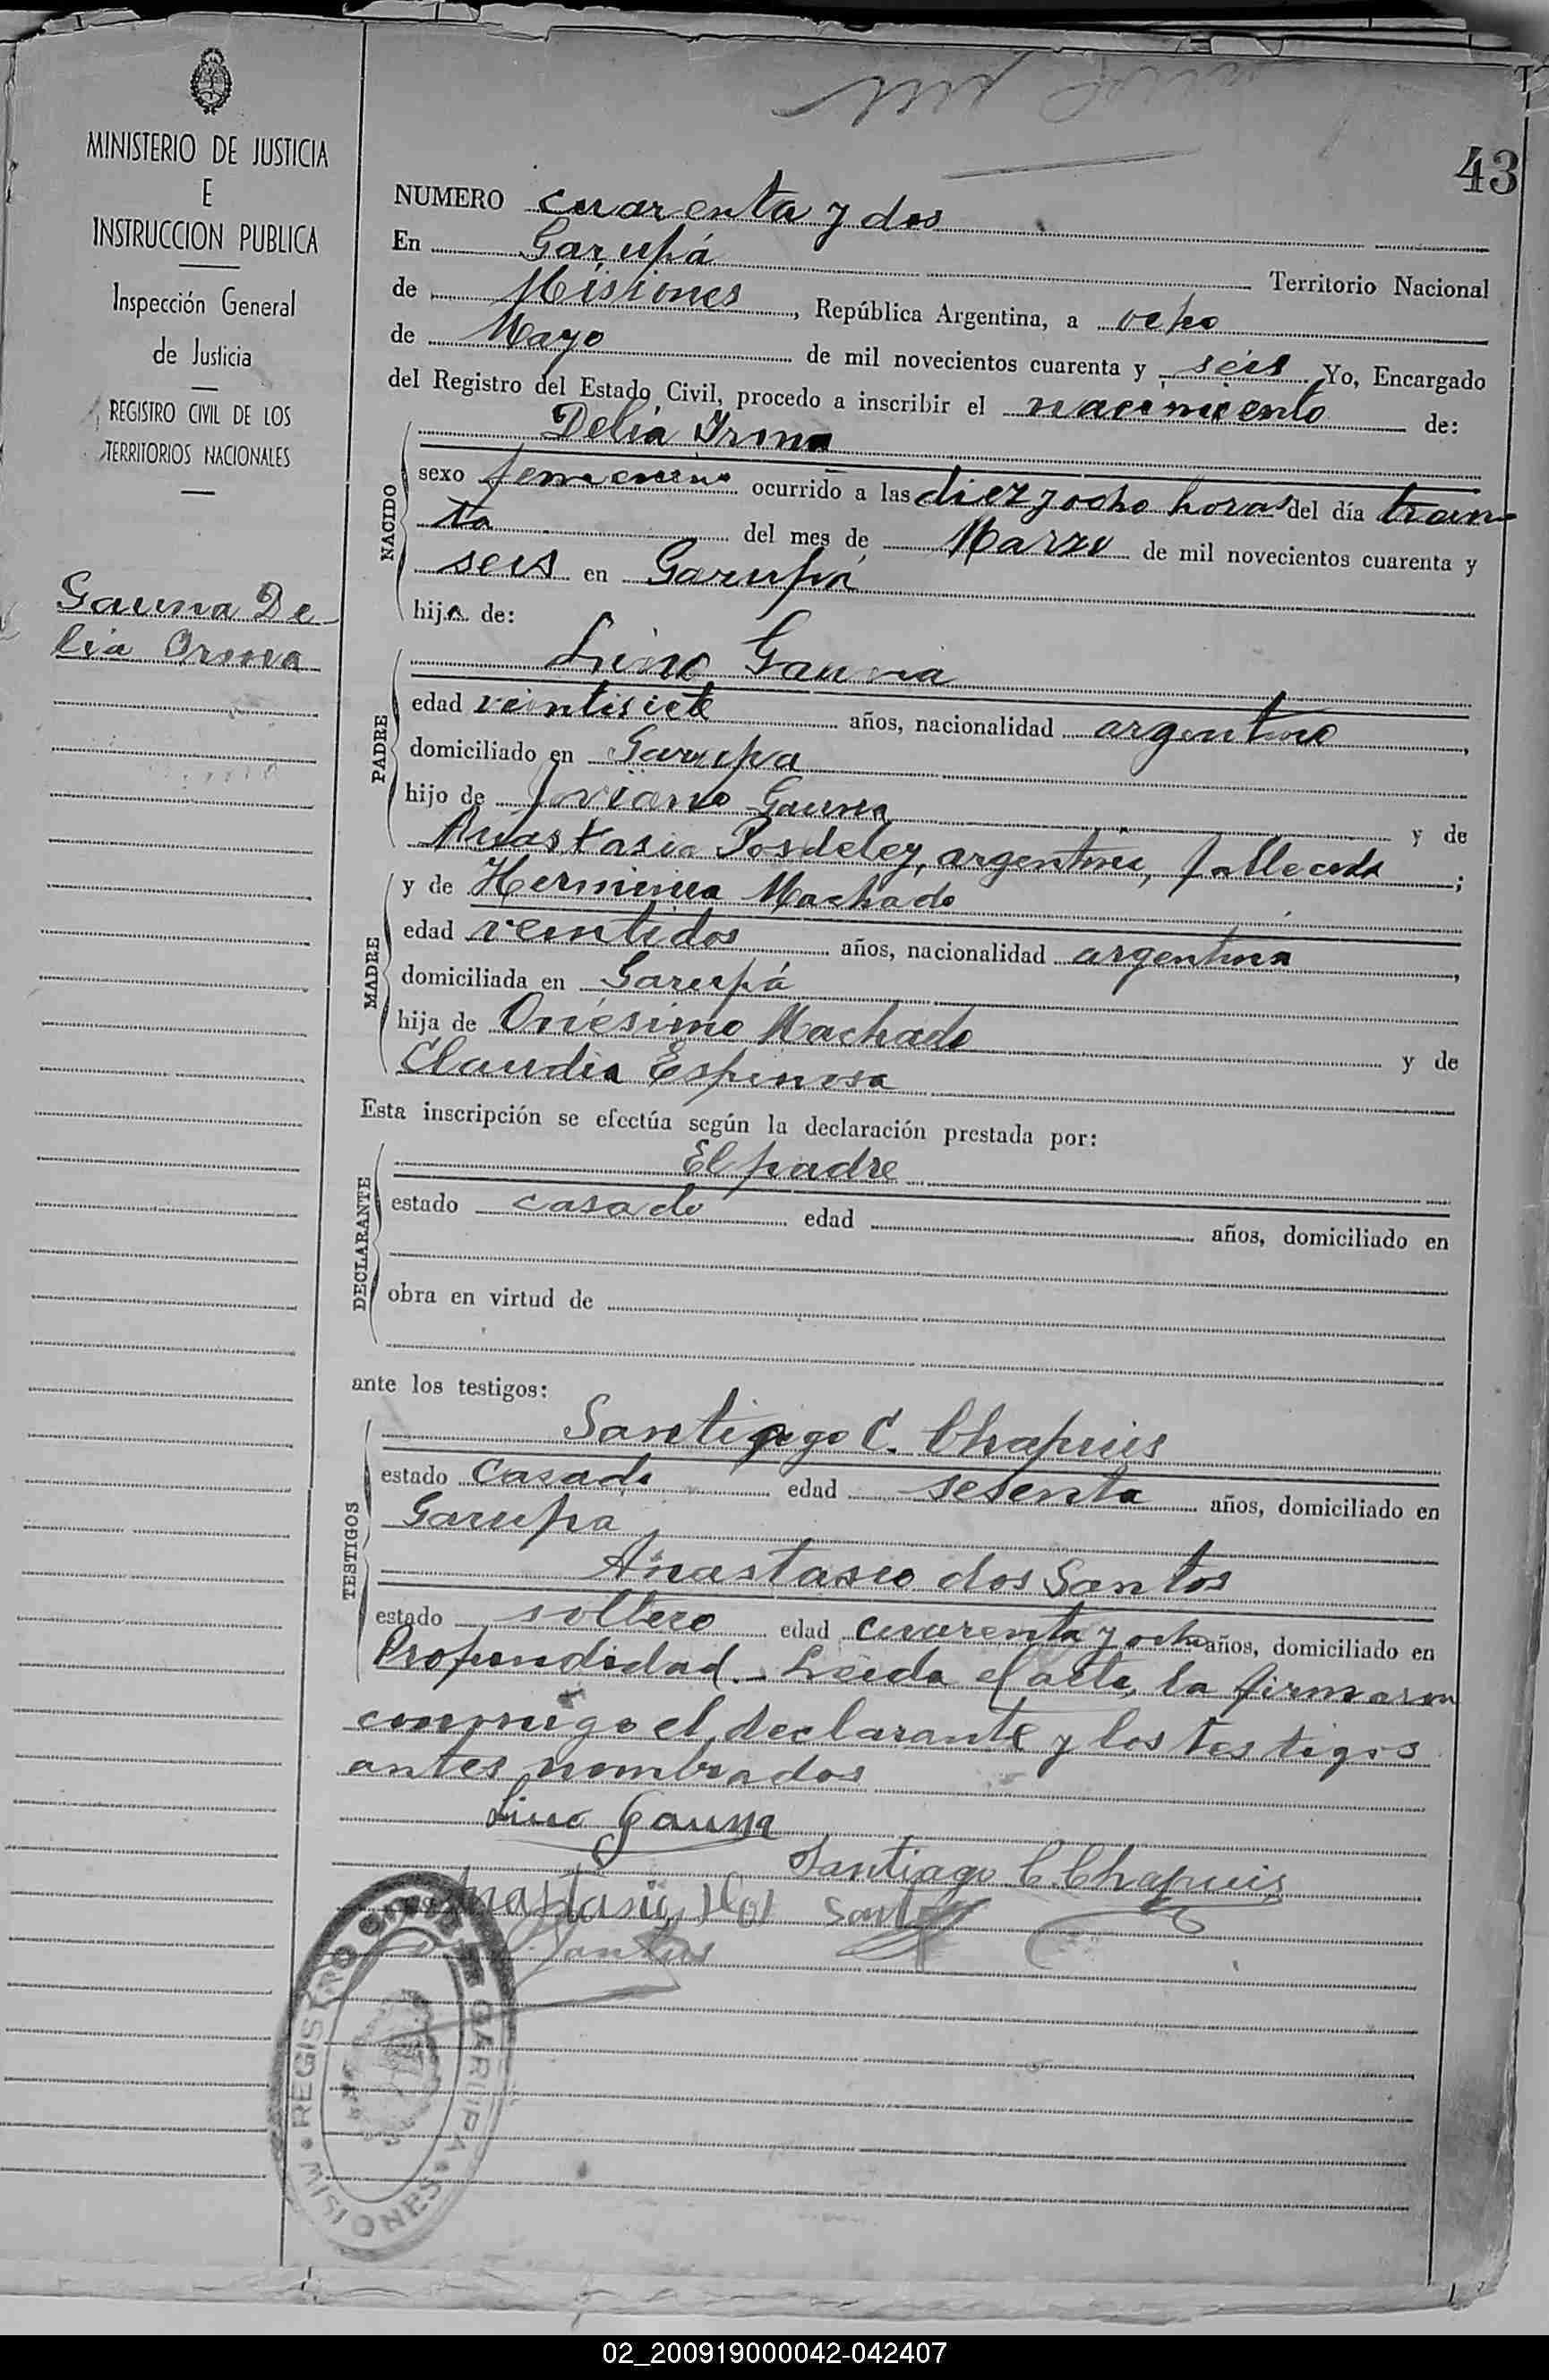 43
MINISTERIO DE JUSTICIA
E
INSTRUCCION PUBLICA
Inspección General
de Justicia
REGISTRO CIVIL DE LOS
TERRITORIOS NACIONALES
Gauna De-
lia Orma
NUMERO cuarenta y dos
En Garupá Territorio Nacional
de Misiones, República Argentina, a ocho
de Mayo de mil novecientos cuarenta y seis Yo, Encargado
del Registro del Estado Civil, procedo a inscribir el nacimiento de:
Delia Irma
NACIDO
sexo femenino ocurrido a las diez y ocho horas del día trein-
ta del mes de Marzo de mil novecientos cuarenta y
seis en Garupá
hija de:
Lino Gauna
PADRE
edad veintisiete años, nacionalidad argentino,
domiciliado en Garupa
hijo de Joviano Gauna y de
Anastasia Posdeley, argentina, fallecida;
y de Herminia Machado
MADRE
edad veintidos años, nacionalidad argentina,
domiciliada en Garupá
hija de Onésimo Machado y de
Claudia Espinosa
Esta inscripción se efectúa según la declaración prestada por:
El padre
DECLARANTE
estado casado edad años, domiciliado en
obra en virtud de
ante los testigos:
Santiago C. Chapuis
TESTIGOS
estado Casado edad sesenta años, domiciliado en
Garupa
Anastasio dos Santos
estado soltero edad cuarenta y ocho años, domiciliado en
Profundidad.- Leida el acta, la firmaron
conmigo el declarante y los testigos
antes nombrados
Lino Gauna
Santiago C. Chapuis
Anastasio Dos Santos
REGISTRO CIVIL GARUPA MISIONES
02_200919000042-042407